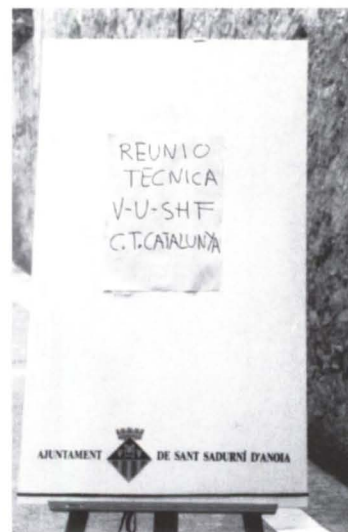 REUNIO
TECNICA
V-U-SHF
C.T.CATALUNYA
AJUNTAMENT DE SANT SADURNÍ D'ANOIA